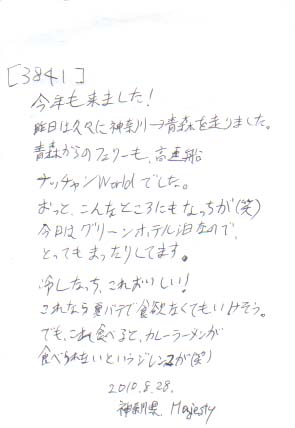 [3841]
今年も来ました!
昨日は久々に神奈川→青森を走りました。
青森からのフェリーも、高速船
ナッチャンWorldでした。
おっと、こんなところにもなっちが(笑)
今日はグリーンホテル泊なので、
とってもまったりしてます。
冷しなっち、これおいしい!
これなら夏バテで食欲なくてもいけそう。
でも、これ食べると、カレーラーメンが
食べられないというジレンマが(笑)
2010.8.28.
神奈川県 Majesty